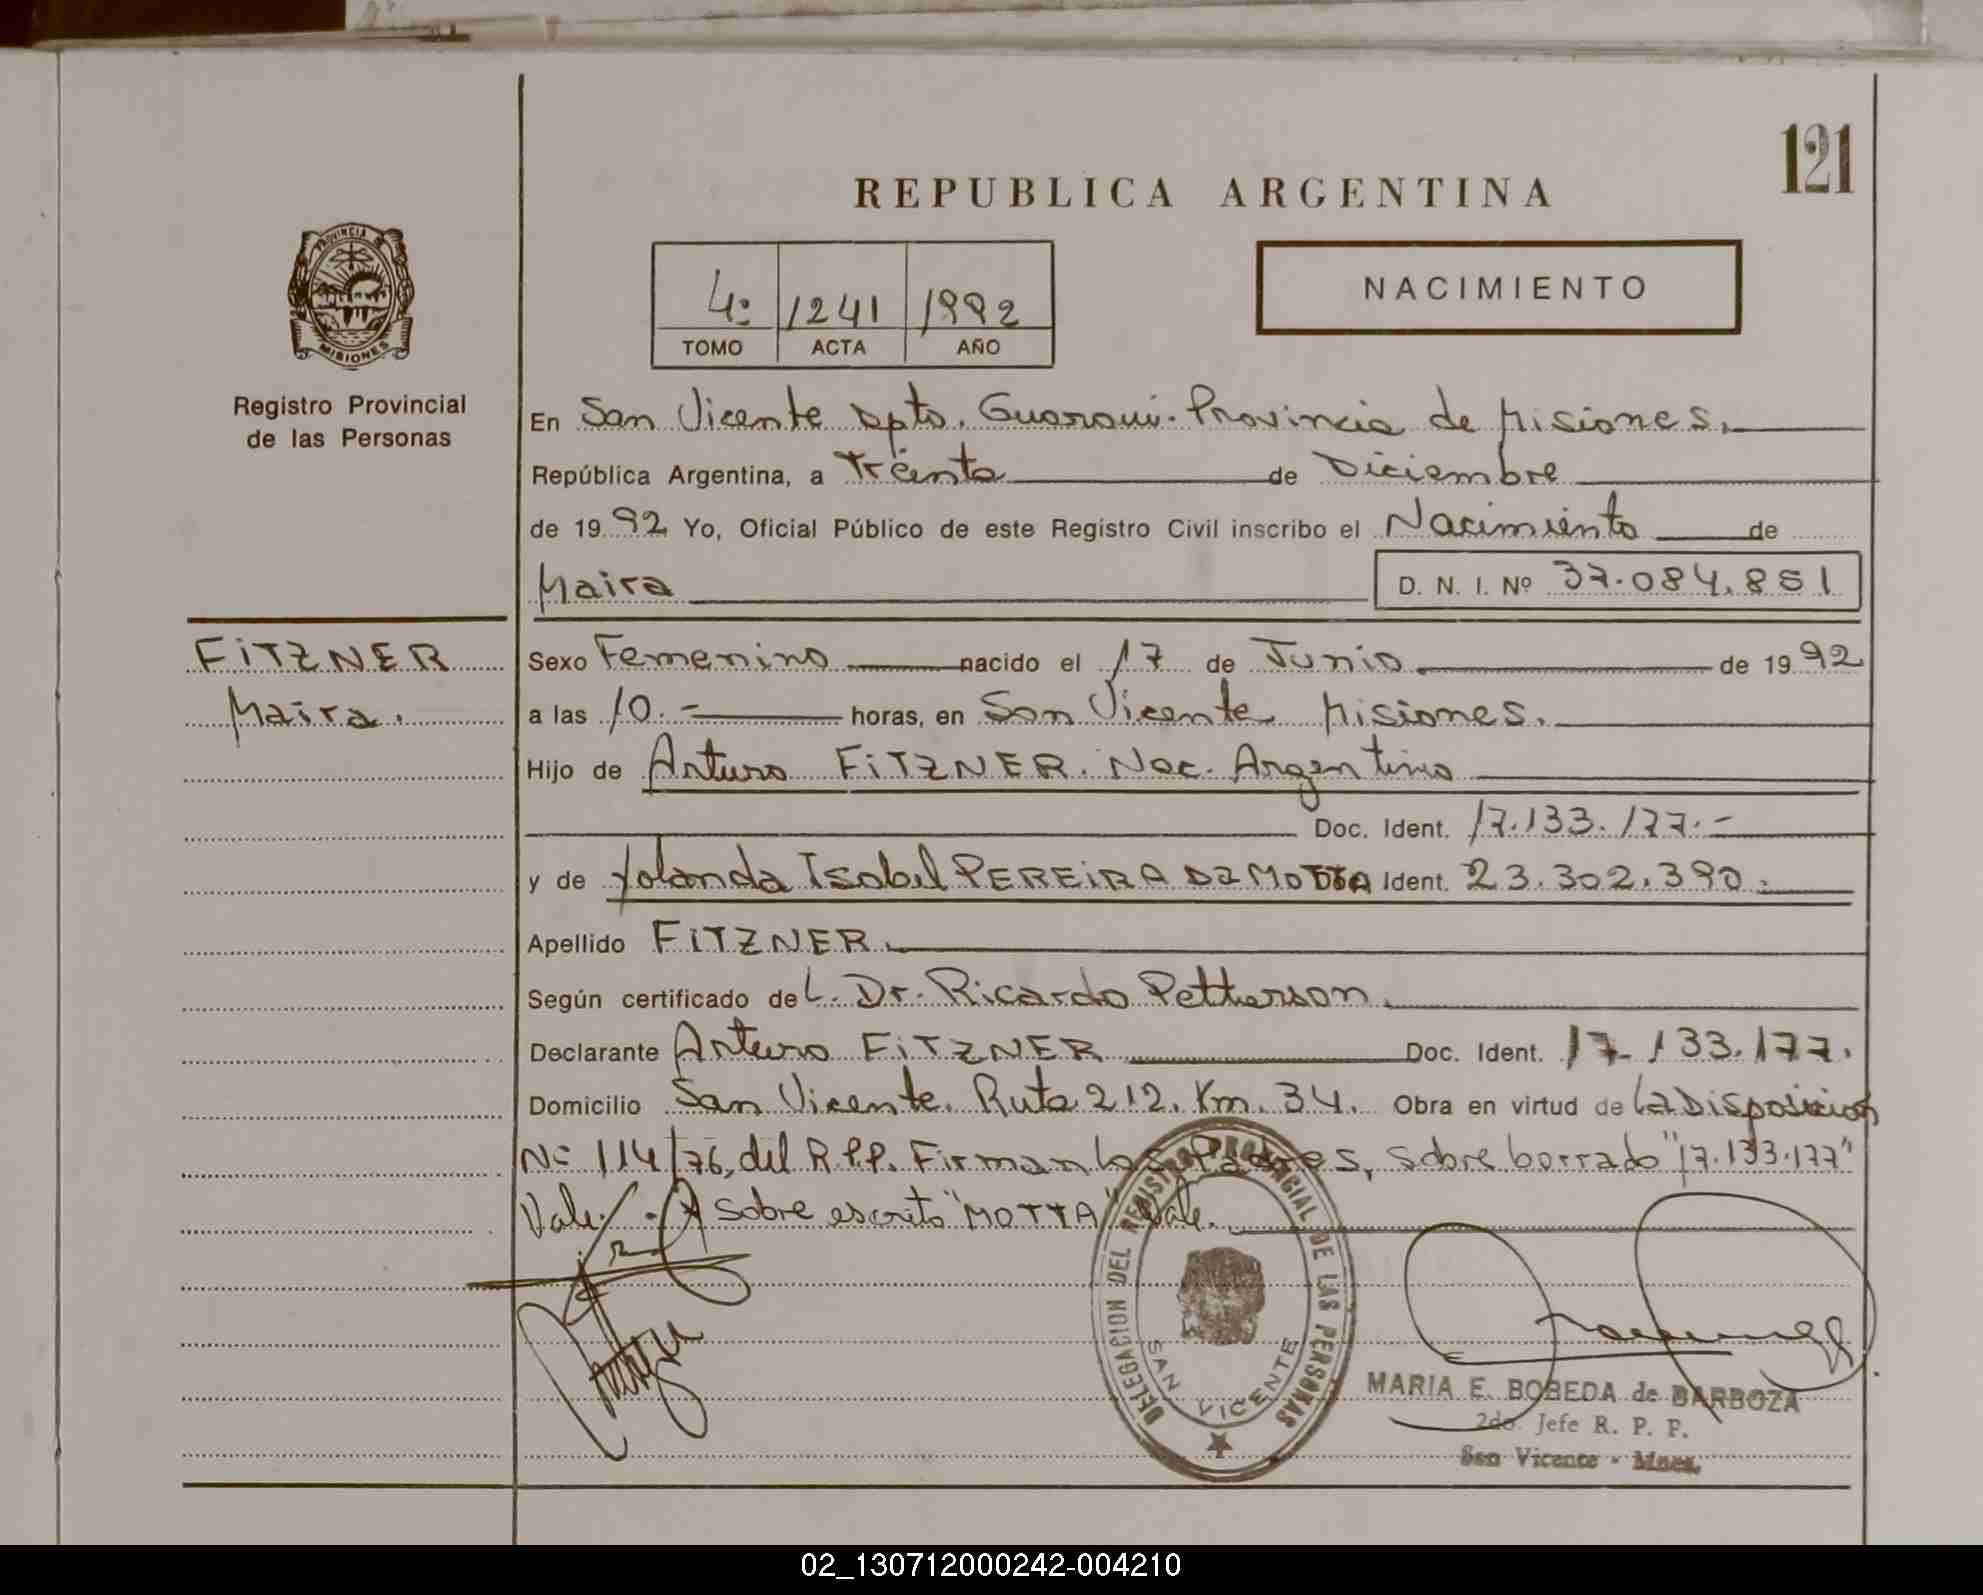 121
REPUBLICA ARGENTINA
PROVINCIA DE
MISIONES
Registro Provincial
de las Personas
4º 1241 1992
TOMO ACTA AÑO
NACIMIENTO
En San Vicente Dpto. Guaraní. Provincia de Misiones.
República Argentina, a Treinta de Diciembre
de 1992 Yo, Oficial Público de este Registro Civil inscribo el Nacimiento de
Maira D. N. I. Nº 37.084.851
FiTZNER
Maira.
Sexo Femenino nacido el 17 de Junio de 1992
a las 10.- horas, en San Vicente Misiones.
Hijo de Arturo FiTZNER. Nac. Argentino
Doc. Ident. 17.133.177.-
y de Yolanda Isabel PEREiRA DA MOTTA Ident. 23.302.390.
Apellido FiTZNER.
Según certificado de L. Dr. Ricardo Petterson.
Declarante Arturo FiTZNER Doc. Ident. 17.133.177.
Domicilio San Vicente. Ruta 212. Km. 34. Obra en virtud de La Disposicion
Nº 114/76, del R.P.P. Firman los Padres, sobre borrado "17.133.177"
Vale. sobre escrito "MOTTA" Vale.
DELEGACION DEL REGISTRO PROVINCIAL DE LAS PERSONAS
SAN VICENTE
MARIA E. BOBEDA de BARBOZA
2do. Jefe R. P. P.
San Vicente - Mnes.
02_130712000242-004210